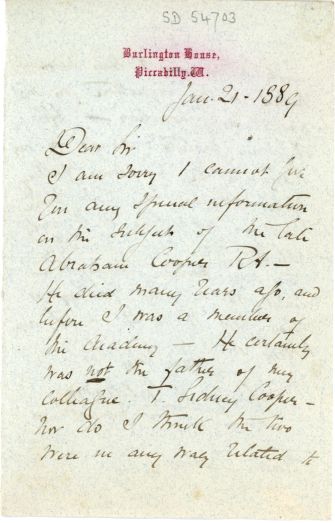 SD 54703
Burlington House,
Piccadilly. W.
Jan. 21 - 1889
Dear Sir
I am sorry I cannot give
you any special information
on the subject of the late
Abraham Cooper RA. —
He died many years ago, and
before I was a member of
the Academy — He certainly
was not the father of my
colleague. T. Sidney Cooper —
nor do I think the two
were in any way related to